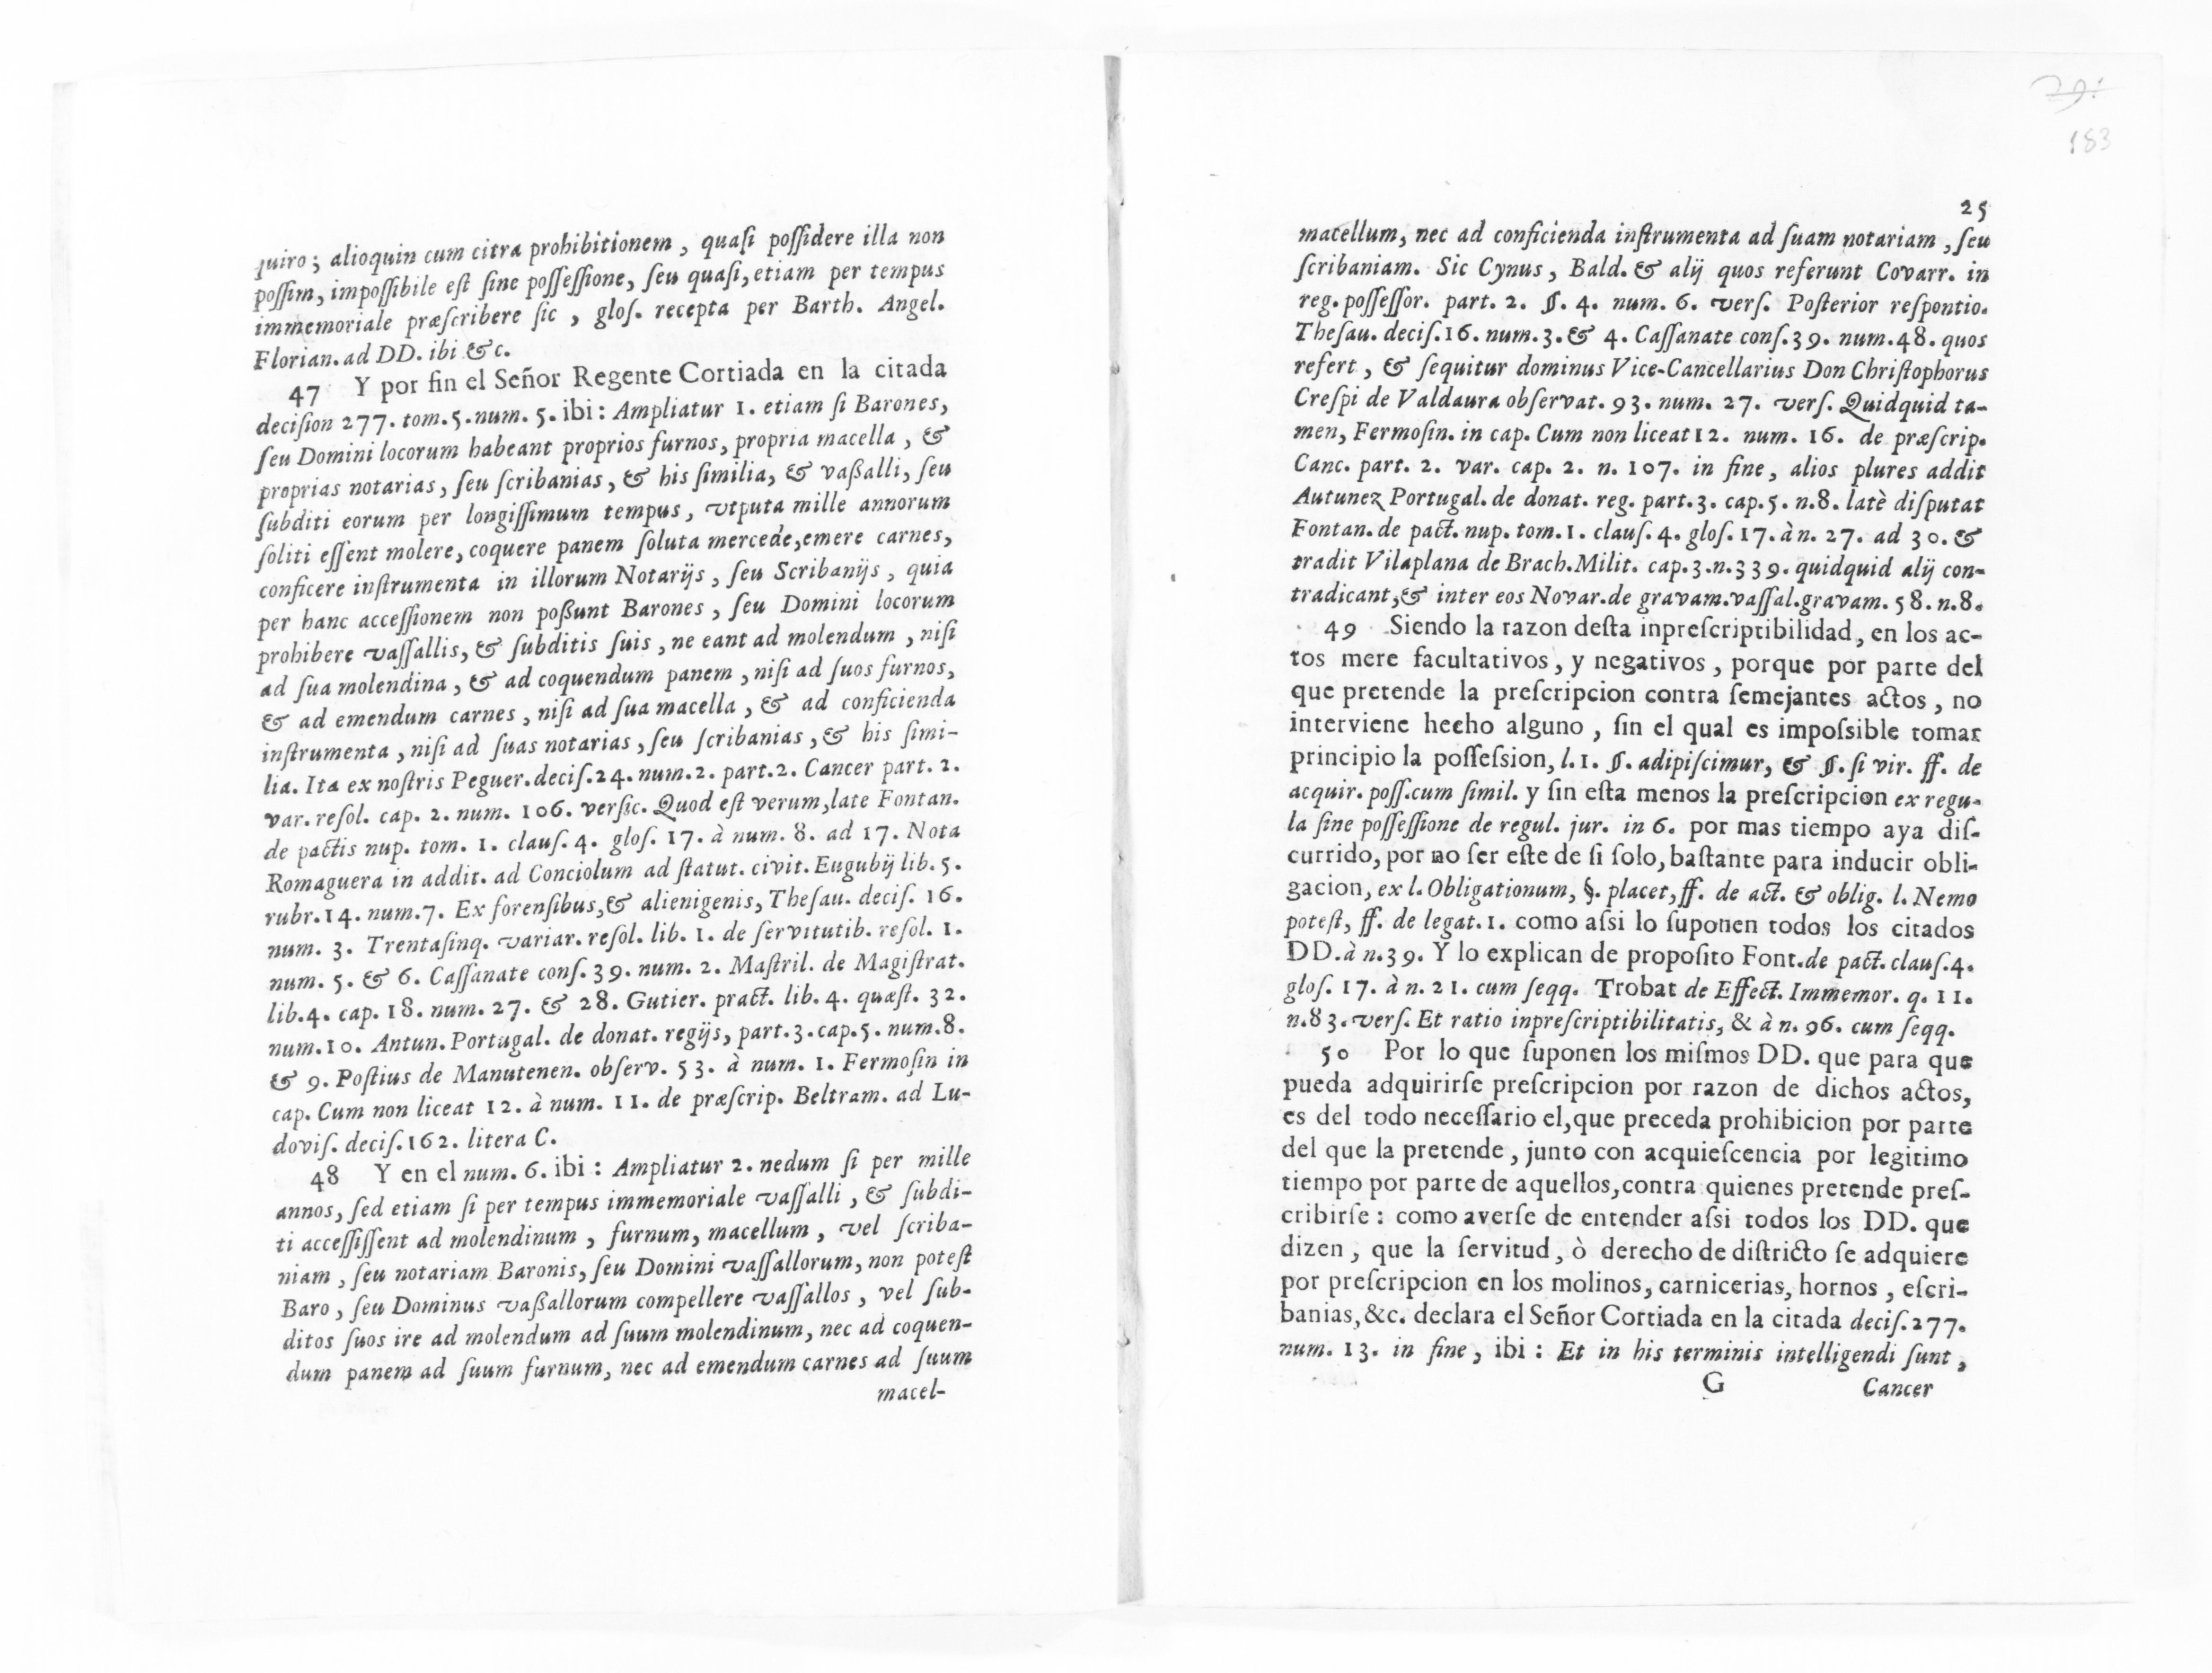 quiro; alioquin cum citra prohibitionem, quaſi poſſidere illa non
poſſim, impoſſibile eſt ſine poſſeſſione, ſeu quaſi, etiam per tempus
immemoriale præſcribere ſic, gloſ. recepta per Barth. Angel.
Florian. ad DD. ibi &c.
47 Y por fin el Señor Regente Cortiada en la citada
deciſion 277. tom. 5. num. 5. ibi: Ampliatur 1. etiam ſi Barones,
ſeu Domini locorum habeant proprios furnos, propria macella, &
proprias notarias, ſeu ſcribanias, & his ſimilia, & vaßalli, ſeu
ſubditi eorum per longiſſimum tempus, vtputa mille annorum
ſoliti eſſent molere, coquere panem ſoluta mercede, emere carnes,
conficere inſtrumenta in illorum Notarijs, ſeu Scribanijs, quia
per hanc acceſſionem non poßunt Barones, ſeu Domini locorum
prohibere vaſſallis, & ſubditis ſuis, ne eant ad molendum, niſi
ad ſua molendina, & ad coquendum panem, niſi ad ſuos furnos,
& ad emendum carnes, niſi ad ſua macella, & ad conficienda
inſtrumenta, niſi ad ſuas notarias, ſeu ſcribanias, & his ſimi-
lia. Ita ex noſtris Peguer. deciſ. 24. num. 2. part. 2. Cancer part. 2.
var. reſol. cap. 2. num. 106. verſic. Quod eſt verum, late Fontan.
de pactis nup. tom. 1. clauſ. 4. gloſ. 17. à num. 8. ad 17. Nota
Romaguera in addit. ad Conciolum ad ſtatut. civit. Eugubij lib. 5.
rubr. 14. num. 7. Ex forenſibus, & alienigenis, Theſau. deciſ. 16.
num. 3. Trentaſinq. variar. reſol. lib. 1. de ſervitutib. reſol. 1.
num. 5. & 6. Caſſanate conſ. 39. num. 2. Maſtril. de Magiſtrat.
lib. 4. cap. 18. num. 27. & 28. Gutier. pract. lib. 4. quæſt. 32.
num. 10. Antun. Portugal. de donat. regijs, part. 3. cap. 5. num. 8.
& 9. Poſtius de Manutenen. obſerv. 53. à num. 1. Fermoſin in
cap. Cum non liceat 12. à num. 11. de præſcrip. Beltram. ad Lu-
doviſ. deciſ. 162. litera C.
48 Y en el num. 6. ibi: Ampliatur 2. nedum ſi per mille
annos, ſed etiam ſi per tempus immemoriale vaſſalli, & ſubdi-
ti acceſſiſſent ad molendinum, furnum, macellum, vel ſcriba-
niam, ſeu notariam Baronis, ſeu Domini vaſſallorum, non poteſt
Baro, ſeu Dominus vaßallorum compellere vaſſallos, vel ſub-
ditos ſuos ire ad molendum ad ſuum molendinum, nec ad coquen-
dum panem ad ſuum furnum, nec ad emendum carnes ad ſuum
macel-
183
25
macellum, nec ad conficienda inſtrumenta ad ſuam notariam, ſeu
ſcribaniam. Sic Cynus, Bald. & alij quos referunt Covarr. in
reg. poſſeſſor. part. 2. §. 4. num. 6. verſ. Poſterior reſpontio.
Theſau. deciſ. 16. num. 3. & 4. Caſſanate conſ. 39. num. 48. quos
refert, & ſequitur dominus Vice-Cancellarius Don Chriſtophorus
Creſpi de Valdaura obſervat. 93. num. 27. verſ. Quidquid ta-
men, Fermoſin. in cap. Cum non liceat 12. num. 16. de præſcrip.
Canc. part. 2. var. cap. 2. n. 107. in fine, alios plures addit
Autunez Portugal. de donat. reg. part. 3. cap. 5. n. 8. latè diſputat
Fontan. de pact. nup. tom. 1. clauſ. 4. gloſ. 17. à n. 27. ad 30. &
tradit Vilaplana de Brach. Milit. cap. 3. n. 339. quidquid alij con-
tradicant, & inter eos Novar. de gravam. vaſſal. gravam. 58. n. 8.
49 Siendo la razon deſta inpreſcriptibilidad, en los ac-
tos mere facultativos, y negativos, porque por parte del
que pretende la preſcripcion contra ſemejantes actos, no
interviene hecho alguno, ſin el qual es impoſsible tomar
principio la poſſeſsion, l. 1. §. adipiſcimur, & §. ſi vir. ff. de
acquir. poſſ. cum ſimil. y ſin eſta menos la preſcripcion ex regu-
la ſine poſſeſſione de regul. jur. in 6. por mas tiempo aya diſ-
currido, por no ſer eſte de ſi ſolo, baſtante para inducir obli-
gacion, ex l. Obligationum, §. placet, ff. de act. & oblig. l. Nemo
poteſt, ff. de legat. 1. como aſsi lo ſuponen todos los citados
DD. à n. 39. Y lo explican de propoſito Font. de pact. clauſ. 4.
gloſ. 17. à n. 21. cum ſeqq. Trobat de Effect. Immemor. q. 11.
n. 83. verſ. Et ratio inpreſcriptibilitatis, & à n. 96. cum ſeqq.
50 Por lo que ſuponen los miſmos DD. que para que
pueda adquirirſe preſcripcion por razon de dichos actos,
es del todo neceſſario el, que preceda prohibicion por parte
del que la pretende, junto con acquieſcencia por legitimo
tiempo por parte de aquellos, contra quienes pretende preſ-
cribirſe: como averſe de entender aſsi todos los DD. que
dizen, que la ſervitud, ò derecho de diſtricto ſe adquiere
por preſcripcion en los molinos, carnicerias, hornos, eſcri-
banias, &c. declara el Señor Cortiada en la citada deciſ. 277.
num. 13. in fine, ibi: Et in his terminis intelligendi ſunt,
G Cancer